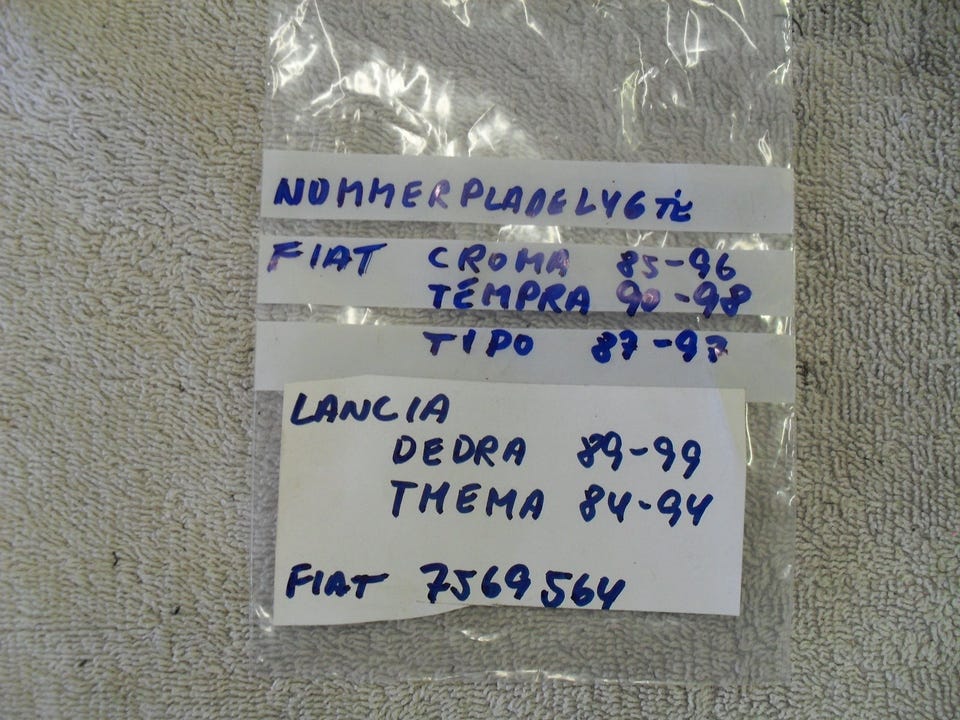 NUMMERPLADELYGTE
FIAT CROMA 85-96
TEMPRA 90-98
TIPO 87-97
LANCIA
DEDRA 89-99
THEMA 84-94
FIAT 7569564